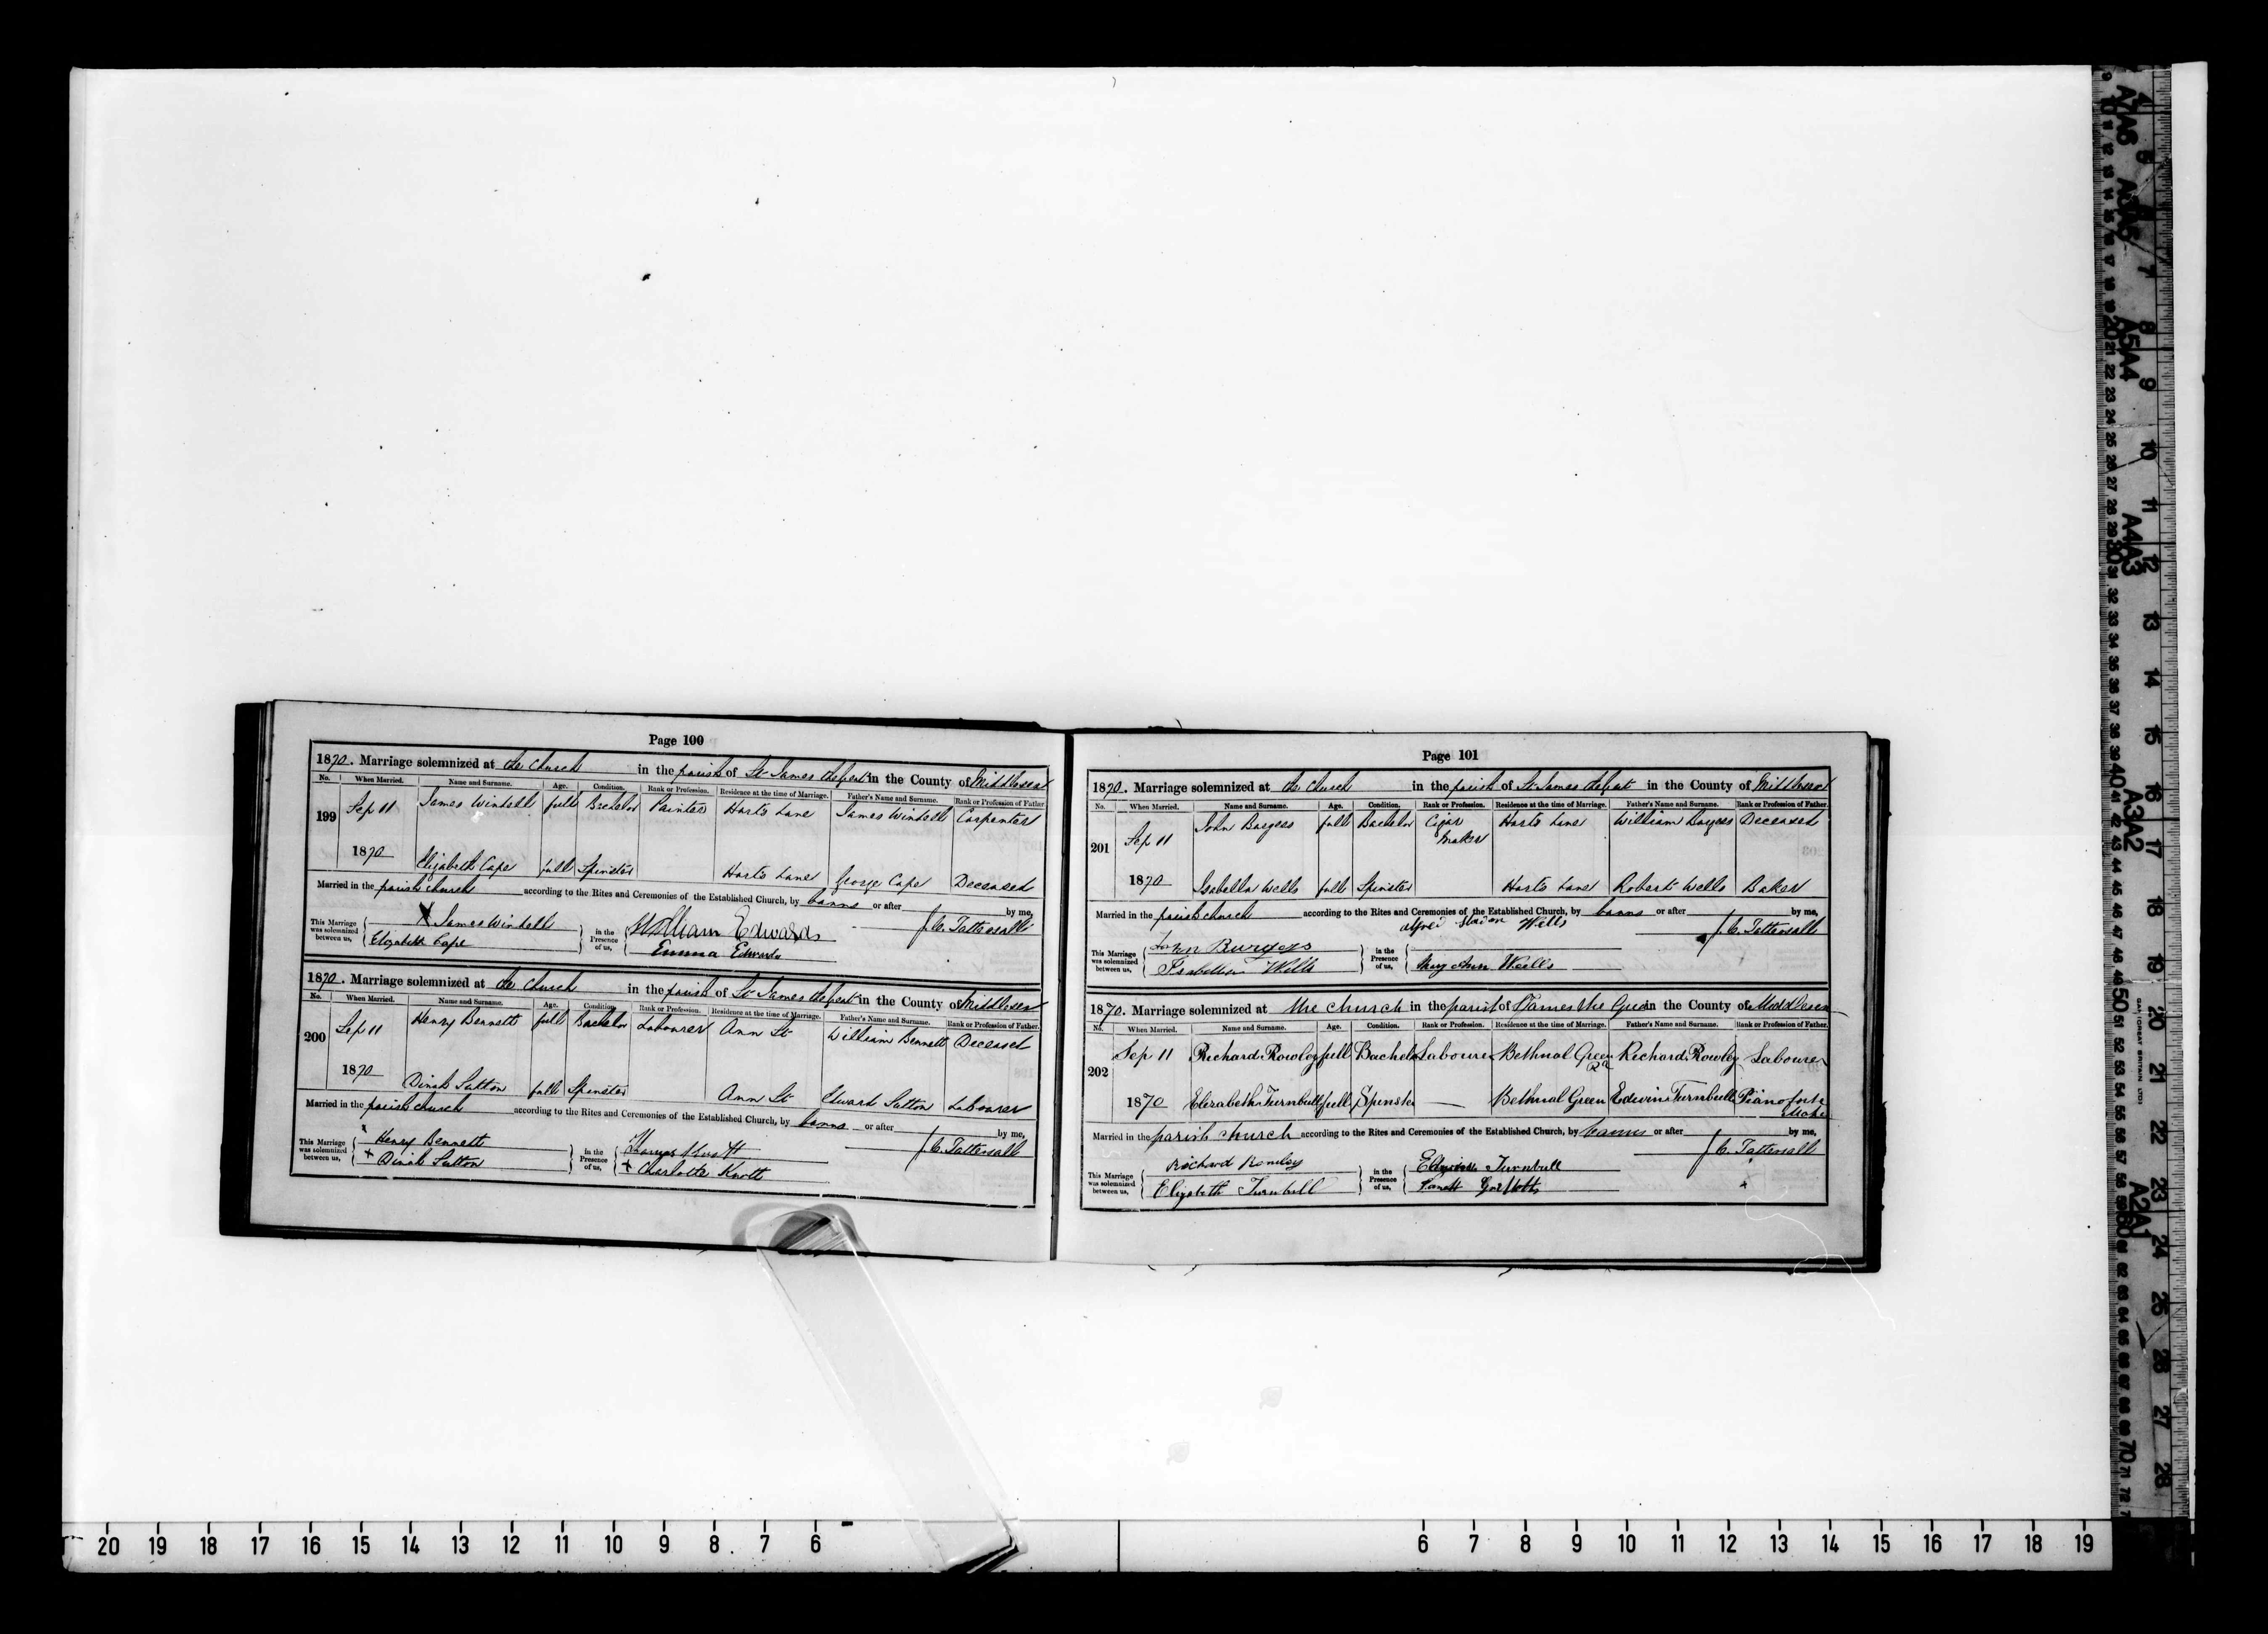 Page 100
1870. Marriage solemnized at the Church in the parish of St James the Great in the County of Middlesex
No. When Married. Name and Surname. Age. Condition. Rank or Profession. Residence at the time of Marriage. Father's Name and Surname. Rank or Profession of Father.
199 Sep 11 James Windell full Bachelor Painter Harts Lane James Windell Carpenter
1870 Elizabeth Cape full Spinster Harts Lane George Cape Deceased
Married in the parish church according to the Rites and Ceremonies of the Established Church, by banns or after by me,
This Marriage was solemnized between us, X James Windell in the Presence of us, William Edwards J. C. Tattersall
Elizabeth Cape Emma Edwards
1870. Marriage solemnized at the Church in the parish of St James the Great in the County of Middlesex
No. When Married. Name and Surname. Age. Condition. Rank or Profession. Residence at the time of Marriage. Father's Name and Surname. Rank or Profession of Father.
200 Sep 11 Henry Bennett full Bachelor Labourer Ann St William Bennett Deceased
1870 Dinah Sutton full Spinster Ann St Edward Sutton Labourer
Married in the parish church according to the Rites and Ceremonies of the Established Church, by banns or after by me,
This Marriage was solemnized between us, Henry Bennett in the Presence of us, Thomas J. C. Tattersall
X Dinah Sutton X Charlotte Knott
Page 101
1870. Marriage solemnized at the Church in the parish of St James the Great in the County of Middlesex
No. When Married. Name and Surname. Age. Condition. Rank or Profession. Residence at the time of Marriage. Father's Name and Surname. Rank or Profession of Father.
201 Sep 11 John Burgess full Bachelor Cigar Maker Harts Lane William Burgess Deceased
1870 Isabella Wells full Spinster Harts Lane Robert Wells Baker
Married in the parish church according to the Rites and Ceremonies of the Established Church, by banns or after by me,
This Marriage was solemnized between us, John Burgess in the Presence of us, Alfred Wells J. C. Tattersall
Isabella Wells Mary Ann Wells
1870. Marriage solemnized at the church in the parish of St James the Great in the County of Middlesex
No. When Married. Name and Surname. Age. Condition. Rank or Profession. Residence at the time of Marriage. Father's Name and Surname. Rank or Profession of Father.
202 Sep 11 Richard Rowley full Bachelor Labourer Bethnal Green Rd Richard Rowley Labourer
1870 Elizabeth Turnbull full Spinster Bethnal Green Edwin Turnbull Pianoforte Maker
Married in the parish church according to the Rites and Ceremonies of the Established Church, by banns or after by me,
This Marriage was solemnized between us, Richard Rowley in the Presence of us, Edwin Turnbull J. C. Tattersall
Elizabeth Turnbull
20 19 18 17 16 15 14 13 12 11 10 9 8 7 6 6 7 8 9 10 11 12 13 14 15 16 17 18 19